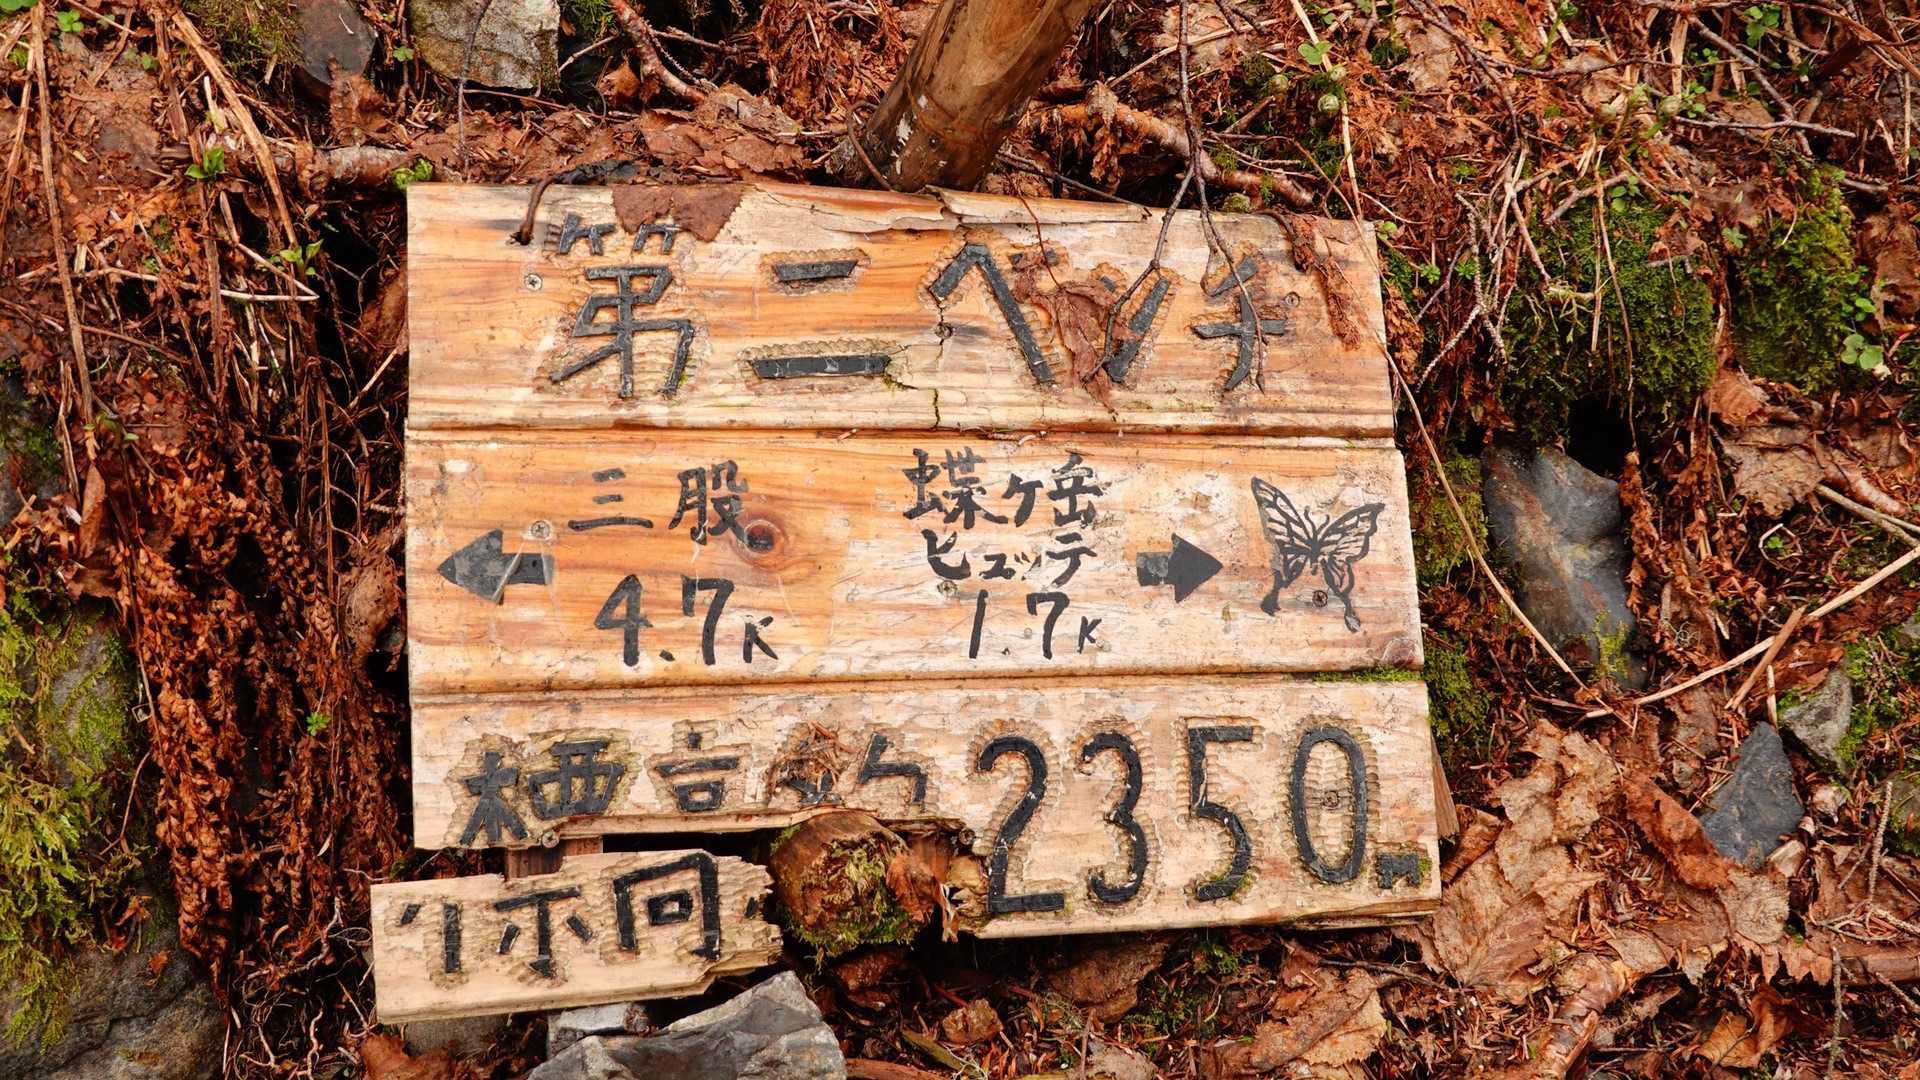 第二ベンチ
三股
4.7K
蝶ヶ岳
ヒュッテ
1.7K
標高約2350m